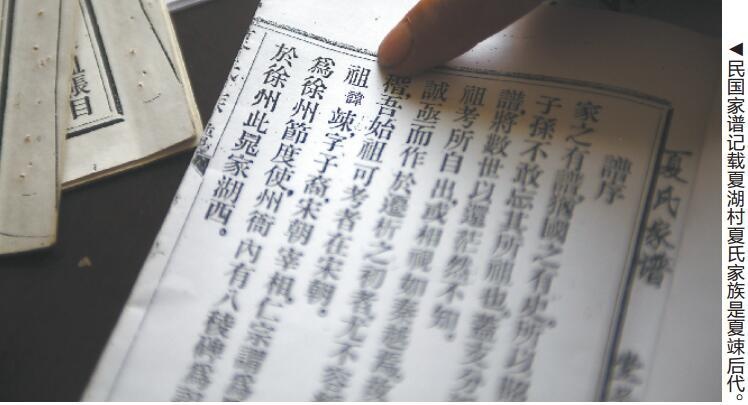 ◀民国家谱记载夏湖村夏氏家族是夏竦后代。
夏氏家谱
譜序
家之有譜,猶國之有史,所以昭
子孫不敢忘其所祖也,蓋支分
譜,將數世以還茫然不知,
祖考所自出,或相視如秦越焉,故
誠亟而作於遷析之初者,尤不容
稽吾始祖可考者在宋朝,
祖諱竦,字子裔,宋朝宰相,仁宗譜爲
爲徐州節度使,州衙內有八稜碑爲
於徐州此晁家湖西。
賬目